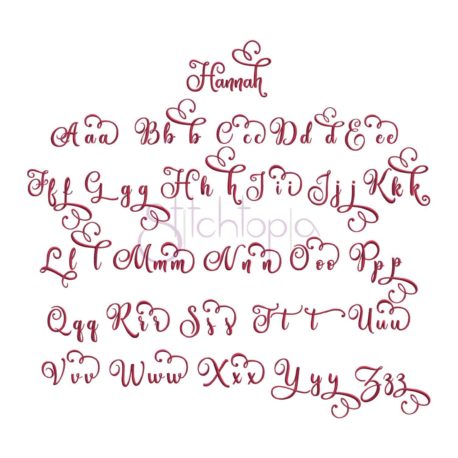 Hannah
Aaa Bbb Ccc Ddd Eee
Fff Ggg Hhh Iii Jjj Kkk
Stitchtopia
Lll Mmm Nnn Ooo Ppp
Qqq Rrr Sss Ttt Uuu
Vvv Www Xxx Yyy Zzz